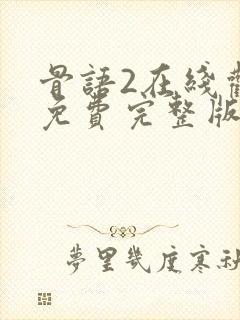 骨語2在綫
免費完整版
夢里幾度寒